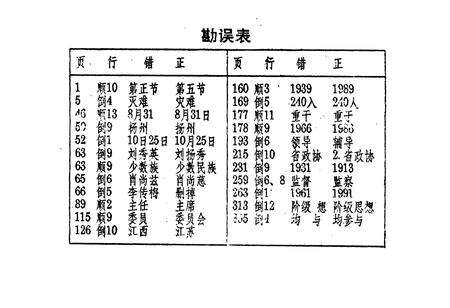 勘误表
页 行 错 正
1 顺10 第正节 第五节
5 倒4 灾难 灾难
46 顺13 8月31 8月31日
52 倒9 杨州 扬州
52 倒1 10日25日 10月25日
63 倒9 刘秀英 刘扬秀
63 顺9 少数民 少数民族
65 倒6 肖尚兹 肖尚慈
66 倒5 李传梅
89 顺2 主任 主席
115 顺9 委员 委员会
126 倒10 江西 江苏
页 行 错 正
160 顺3 1939 1989
169 倒5 240入 240人
177 顺11 重干 重于
178 顺9 1966 1986
193 倒6 领导 辅导
215 倒10 省政协 2.省政协
231 倒9 1931 1913
259 倒6、8 监督 监察
263 倒1 1961 1991
313 倒12 阶级 想 阶级思想
倒4 均 与 均参与